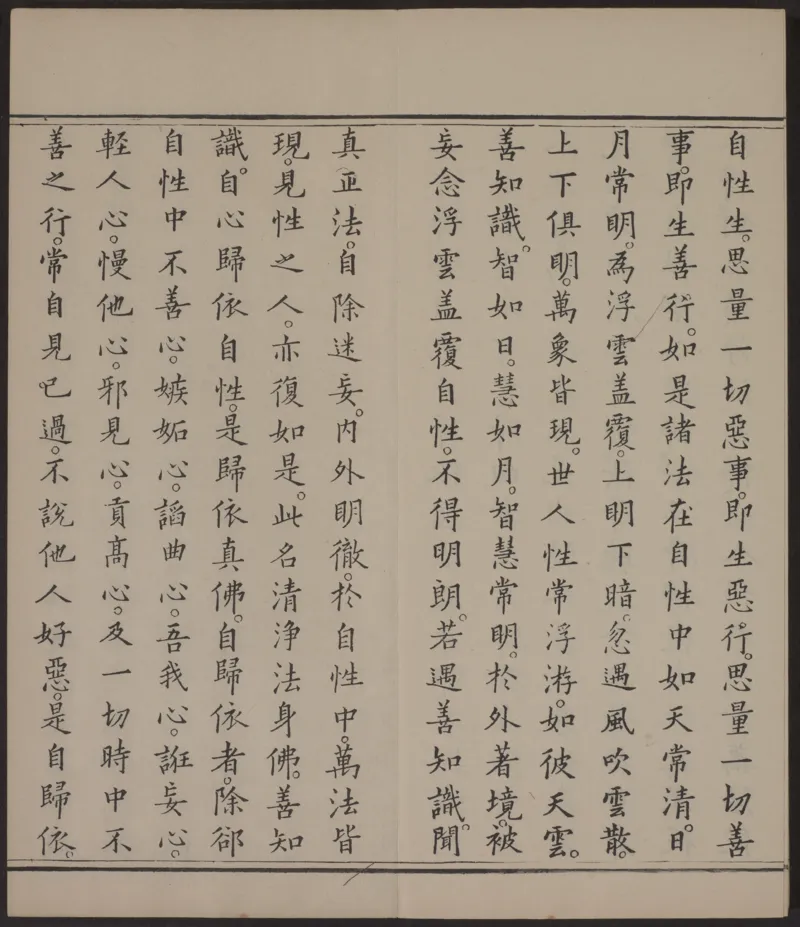 自性生。思量一切惡事。即生惡行。思量一切善
事。即生善行。如是諸法在自性中如天常清。日
月常明。為浮雲盖覆。上明下暗。忽遇風吹雲散。
上下俱明。萬象皆現。世人性常浮游。如彼天雲。
善知識。智如日。慧如月。智慧常明。於外著境。被
妄念浮雲盖覆自性。不得明朗。若遇善知識。聞
真正法。自除迷妄。内外明徹。於自性中。萬法皆
現。見性之人。亦復如是。此名清淨法身佛。善知
識。自心歸依自性。是歸依真佛。自歸依者。除郤
自性中不善心。嫉妬心。謟曲心。吾我心。誑妄心。
輕人心。慢他心。邪見心。貢髙心。及一切時中不
善之行。常自見巳過。不說他人好惡。是自歸依。